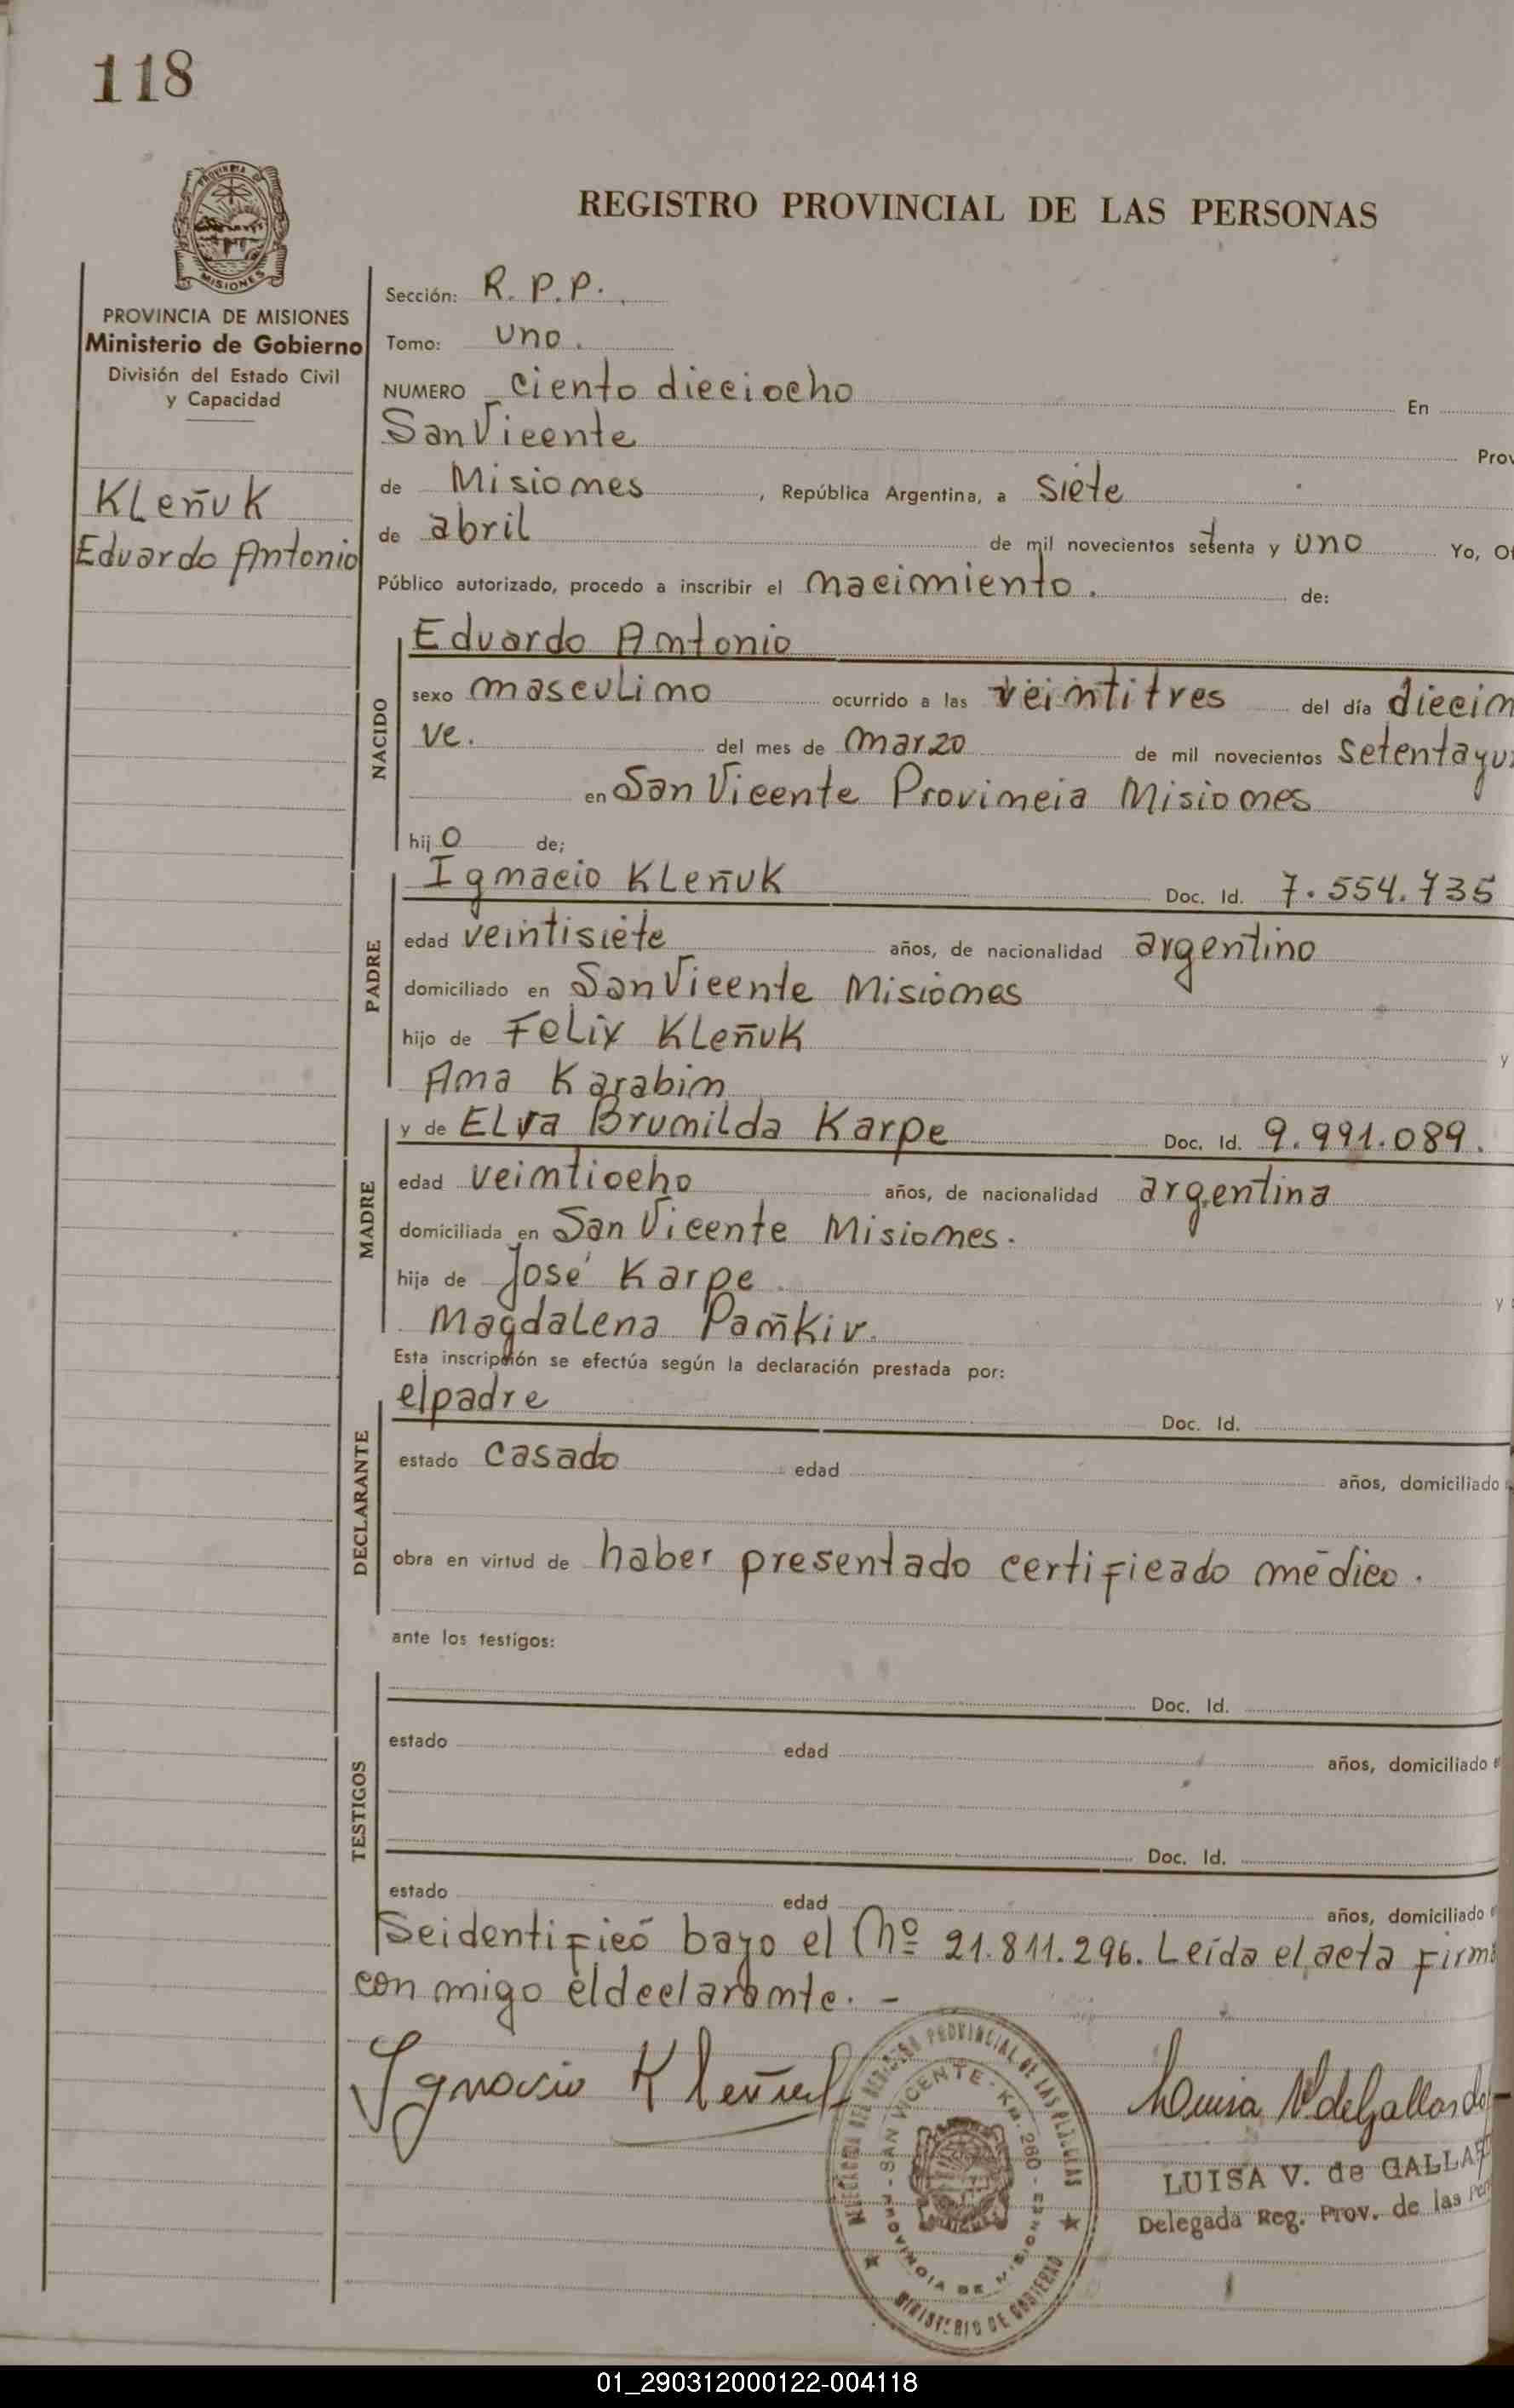 118
PROVINCIA DE
MISIONES
REGISTRO PROVINCIAL DE LAS PERSONAS
PROVINCIA DE MISIONES
Ministerio de Gobierno
División del Estado Civil
y Capacidad
Kleñuk
Eduardo Antonio
Sección: R. P. P.
Tomo: uno.
NUMERO ciento dieciocho En
San Vicente Prov
de Misiones, República Argentina, a siete
de abril de mil novecientos setenta y uno Yo, Of
Público autorizado, procedo a inscribir el nacimiento. de:
NACIDO
Eduardo Antonio
sexo masculino ocurrido a las veintitres del día diecin
ve. del mes de marzo de mil novecientos setenta y u
en San Vicente Provincia Misiones
hijo de;
PADRE
Ignacio Kleñuk Doc. Id. 7.554.735
edad veintisiete años, de nacionalidad argentino
domiciliado en San Vicente Misiones
hijo de Felix Kleñuk y
Ana Karabin
MADRE
y de Elva Brunilda Karpe Doc. Id. 9.991.089.
edad veintiocho años, de nacionalidad argentina
domiciliada en San Vicente Misiones.
hija de José Karpe y
Magdalena Pañkiv.
Esta inscripción se efectúa según la declaración prestada por:
DECLARANTE
el padre Doc. Id.
estado casado edad años, domiciliado
obra en virtud de haber presentado certificado médico.
ante los testigos:
TESTIGOS
Doc. Id.
estado edad años, domiciliado
Doc. Id.
estado edad años, domiciliado
Se identificó bajo el Nº 21.811.296. Leída el acta firma
con migo el declarante. -
Ignacio Kleñuk
Luisa V. de Gallardo
LUISA V. de GALLARD
Delegada Reg. Prov. de las Per
DEL REGISTRO PROVINCIAL DE LAS
SAN VICENTE - KM. 260 -
PROVINCIA DE MISIONES
MINISTERIO DE GOBIERNO
01_290312000122-004118